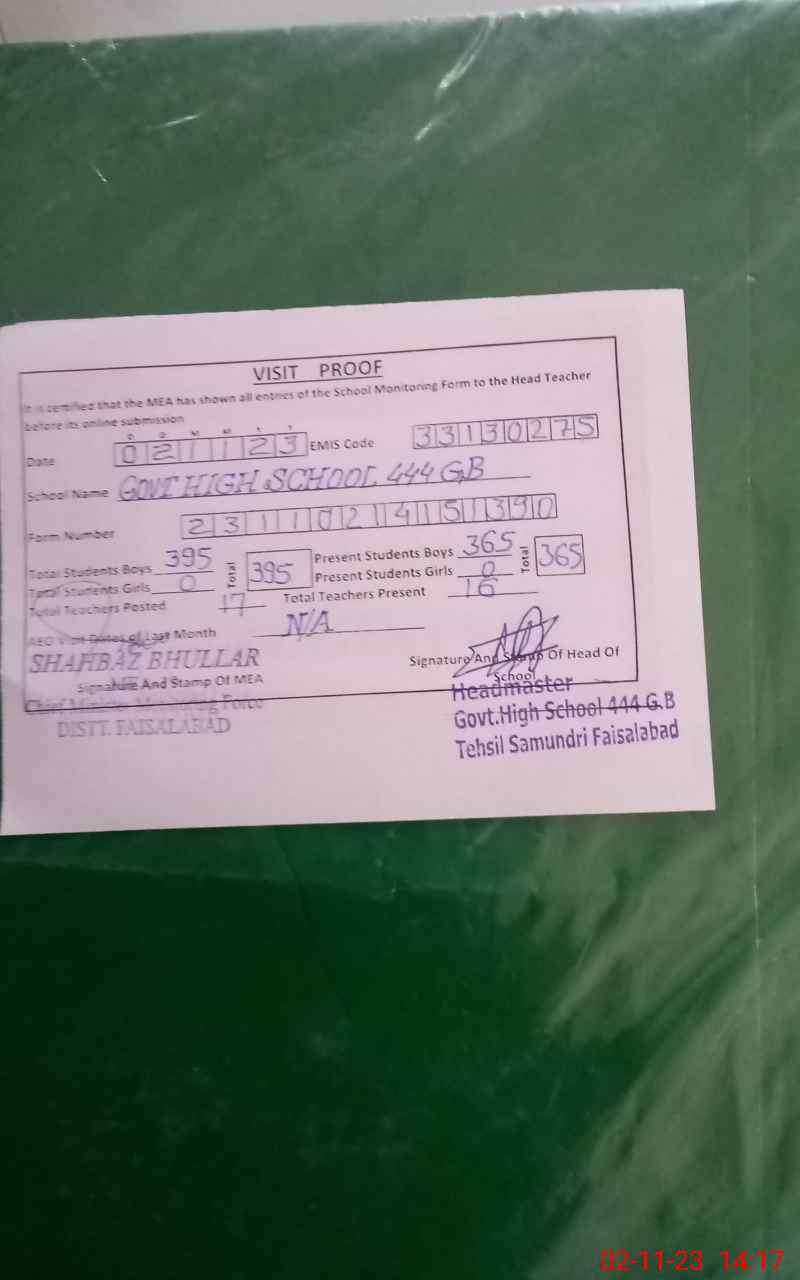 VISIT PROOF
It is certified that the MEA has shown all entries of the School Monitoring Form to the Head Teacher
before its online submission
D D M M Y Y
Date 021123 EMIS Code 33130275
School Name GOVT HIGH SCHOOL 444 GB
Form Number 23110214151390
Total Students Boys 395 Total 395 Present Students Boys 365 Total 365
Total Students Girls 0 Present Students Girls 0
Total Teachers Posted 17 Total Teachers Present 16
AEO Visit Dates of Last Month N/A
SHAHBAZ BHULLAR
Signature And Stamp Of MEA
Signature And Stamp Of Head Of
School
Chief Minister Monitoring Force
DISTT. FAISALABAD
Headmaster
Govt.High School 444 G.B
Tehsil Samundri Faisalabad
02-11-23 14:17